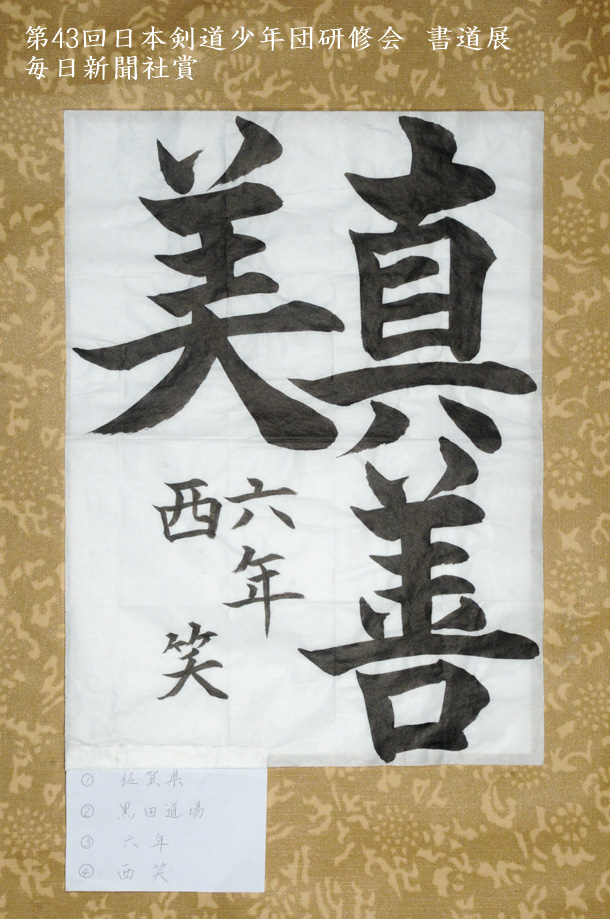 第43回日本剣道少年団研修会 書道展
毎日新聞社賞
真善
美
六年
西 笑
① 佐賀県
② 黒田道場
③ 六年
④ 西 笑